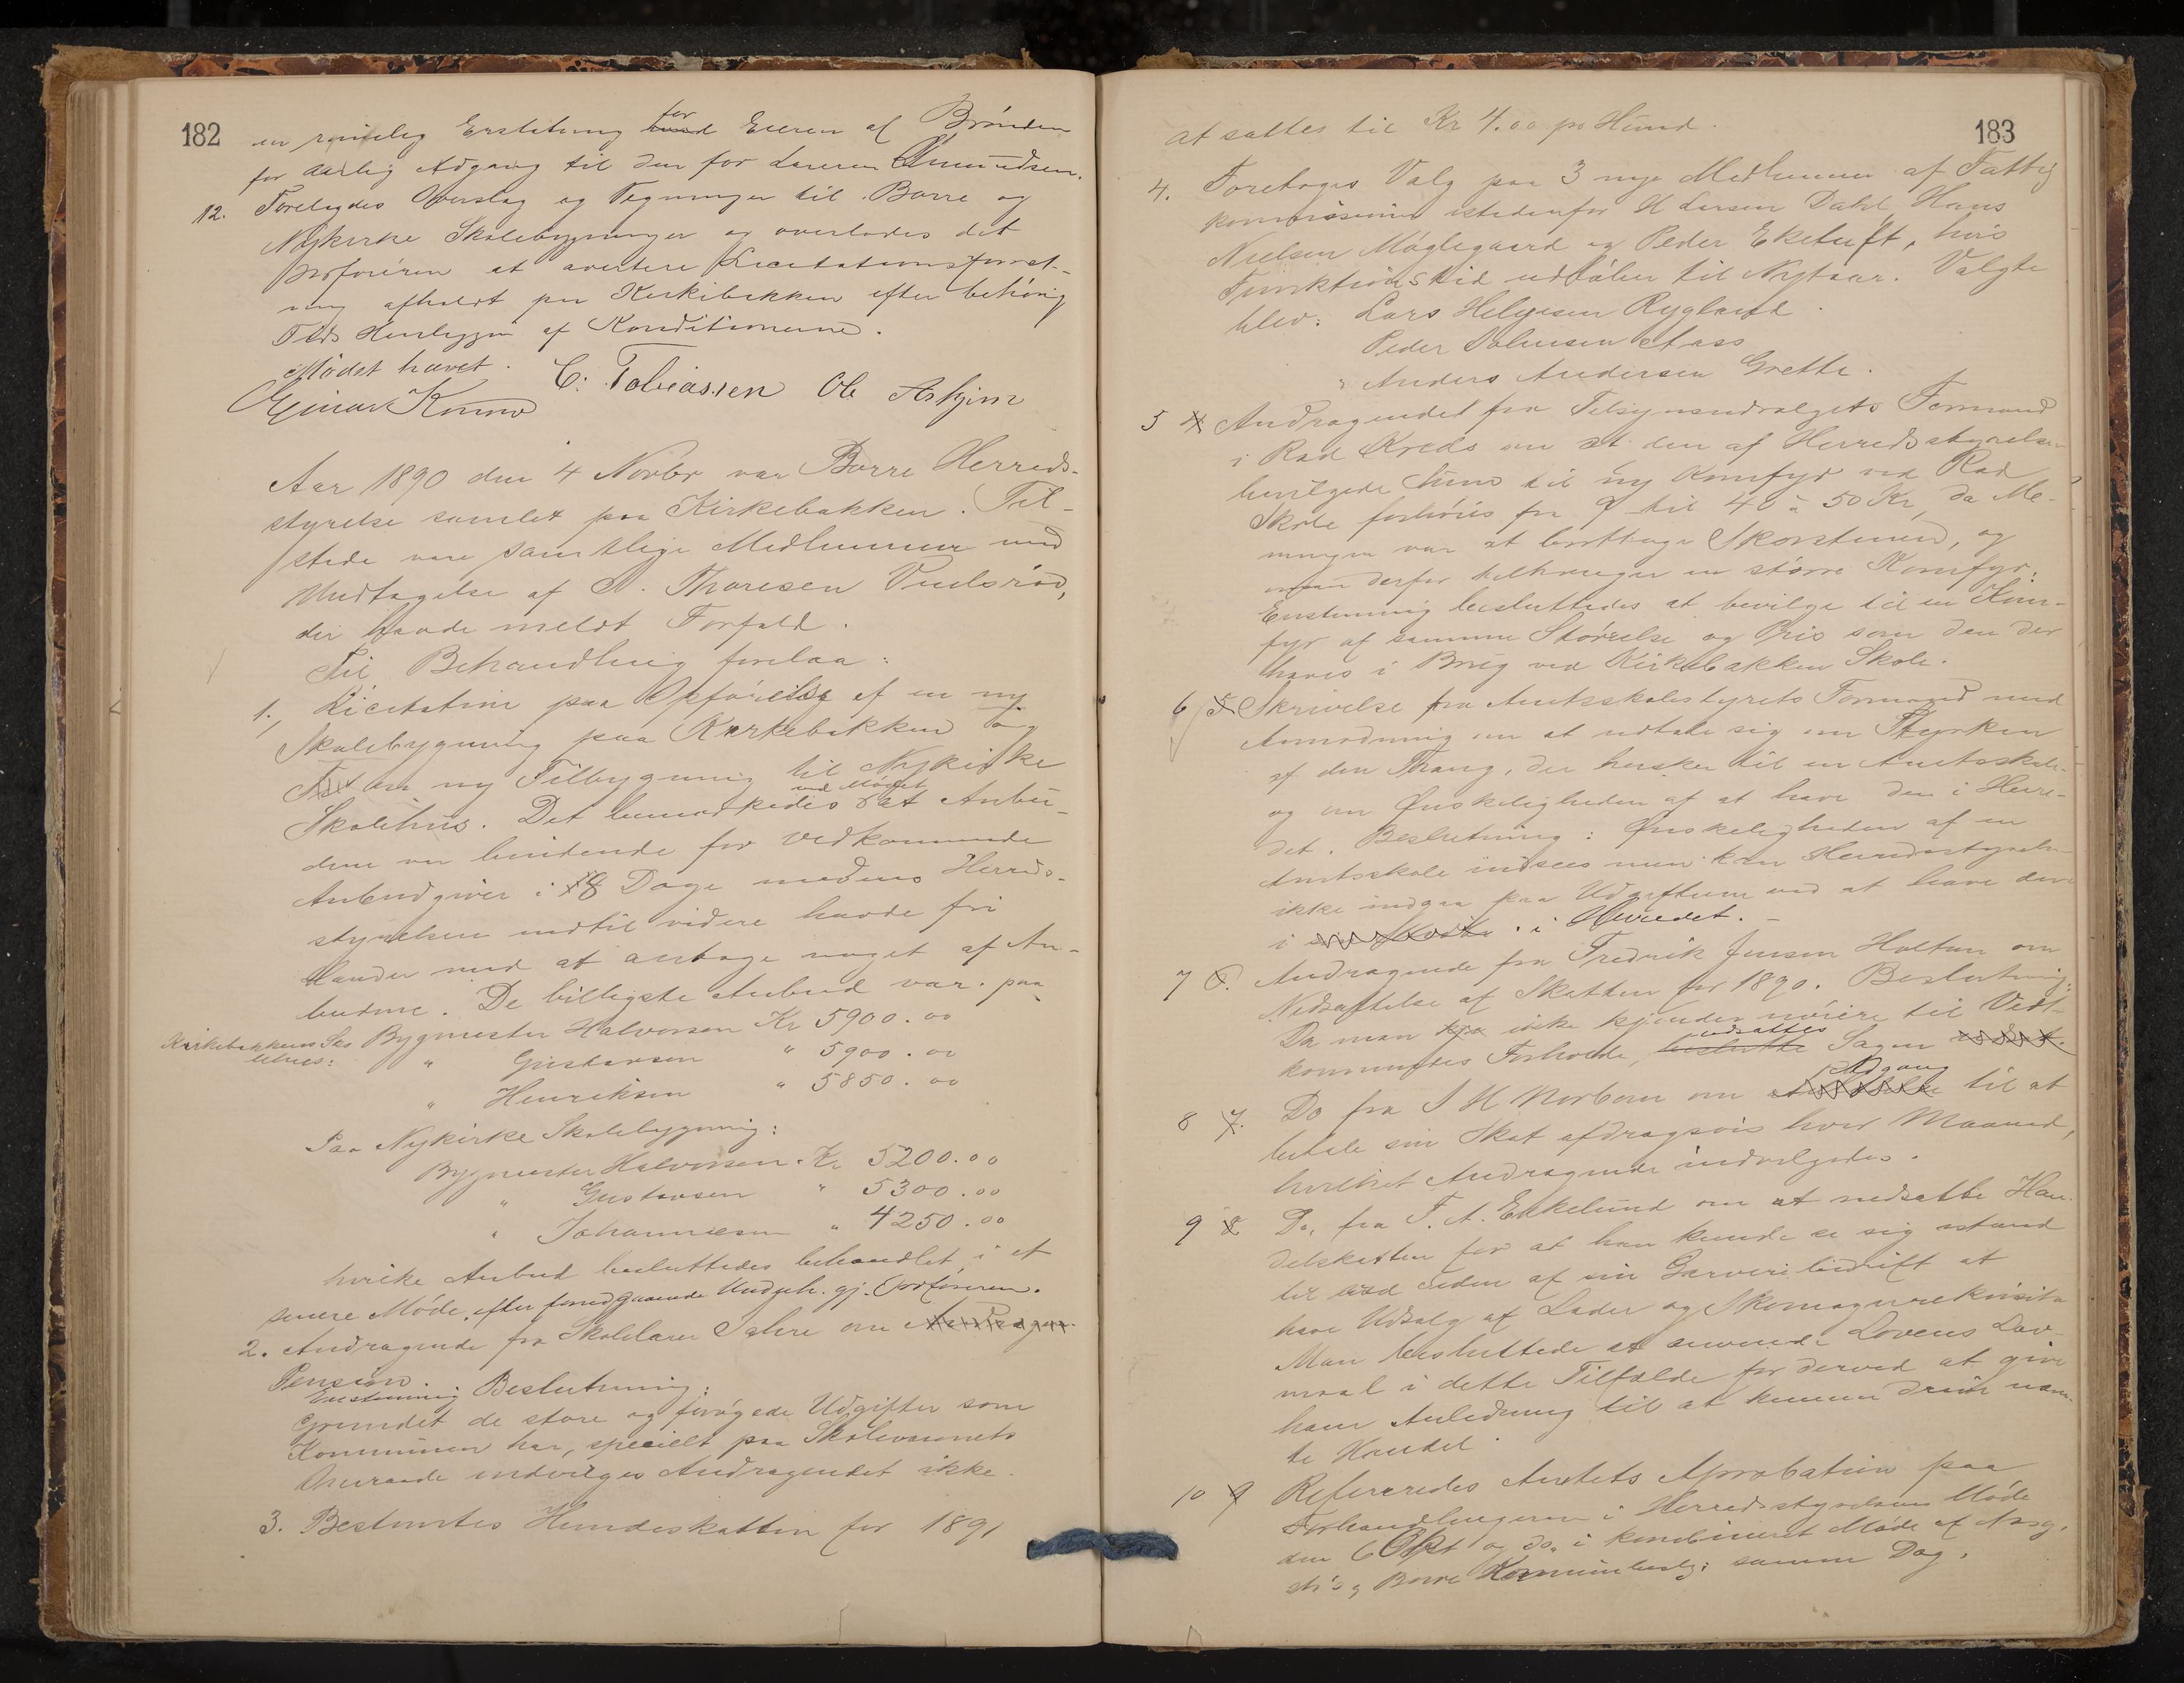 182
en rimelig Erstatning for Eieren af Brønden
for aarlig Adgang til den for Læreren Amundsen.
12. Forelagdes Overslag og Tegninger til Borre og
Nykirke Skolebygninger og overlodes det
Ordføreren at avertere Licitationsforret-
ning afholdt paa Kirkebakken efter behørig
Tids Henliggen af Konditionerne.
Mødet hævet.
C. Tobiassen Ole Askjem
Aar 1890 den 4 Novbr var Borre Herreds-
styrelse samlet paa Kirkebakken. Til-
stede vare samtlige Medlemmer med
Undtagelse af A. Thoresen
der havde meldt Forfald.
Til Behandling forelaa:
1. Licitation paa Opførelse af en ny
Skolebygning paa Kirkebakken og
en ny Tilbygning til Nykirke
Skolehus. Det bemærkedes ved Mødet at Anbu-
dene var bindende for vedkommende
Anbudgiver i 8 Dage medens Herreds-
styrelsen indtil videre havde fri
Hænder med at antage noget af An-
budene. De billigste Anbud var paa
Kirkebakkens Sko-
lehus: Bygmester Halvorsen Kr 5900.00
" Gustavsen " 5900.00
" Henriksen " 5850.00
Paa Nykirke Skolebygning:
Bygmester Halvorsen Kr 5200.00
" Gustavsen " 5300.00
" Johannesen " 4250.00
hvilke Anbud besluttedes behandlet i et
senere Møde, efter forudgaaende Undersøg. gj. Ordføreren.
2. Andragende fra Skolelærer om
Pension.
Enstemmig Beslutning:
Grundet de store og forøgede Udgifter som
Kommunen har, specielt paa Skolevæsenets
Omraade indvilges Andragendet ikke.
3. Bestemtes Hundeskatten for 1891
183
at sættes til Kr 4.00 pr Hund.
4. Foretoges Valg paa 3 nye Medlemmer af Fattig
kommissionen istedenfor H Larsen Dahl, Hans
Nielsen Møglegaard og Peder Eketuft, hvis
Funktionstid udløber til Nytaar. Valgte
blev: Lars Helgesen Rygland
Peder Johnsen Aass
" Anders Andersen Grette.
5 4 Andragendet fra Tilsynsudvalgets Formand
i Rød Kreds om at den af Herredsstyrelsen
bevilgede Sum til ny Komfyr ved Rød
Skole forhøies fra til 40 à 50 Kr, da Me-
ningen var at borttage Skorstenen, og
man derfor tiltrænger en større Komfyr.
Enstemmig besluttedes at bevilge til en Kom-
fyr af samme Størrelse og Pris som den der
haves i Brug ved Kirkebakken Skole.
6 5 Skrivelse fra Amtsskolestyrets Formand med
Anmodning om at udtale sig om Styrken
af den Trang, der hersker til en Amtsskole
og om Ønskeligheden af at have den i Herre-
det. Beslutning: Ønskeligheden af en
Amtsskole indsees men kan Herredsstyrelsen
ikke indgaa paa Udgifterne ved at have den
i i Herredet. -
7 6. Andragende fra Fredrik Jensen Holtan om
Nedsættelse af Skatten for 1890. Beslutning:
Da man ikke kjender nøiere til Ved-
kommendes Forholde, udsættes Sagen
8 7. Do fra J H Norbom om Adgang til at
betale sin Skat afdragsvis hver Maaned,
hvilket Andragende indvilgedes.
9 8 Do. fra F. A. Enkelund om at nedsætte Han-
delskatten for at han kunde se sig istand
til ved siden af sin Garveribedrift at
have Udsalg af Læder og Skomagerrekvisita
Man besluttede at anvende Lovens Lav-
maal i dette Tilfælde for derved at give
ham Anledning til at kunne drive nævn-
te Handel.
10 9 Refereredes Amtets Aprobation paa
Forhandlingerne i Herredsstyrelsens Møde
den 6 Okt og do. i kombineret Møde af Aasg.
str's og Borre Kommunbest. samme Dag.